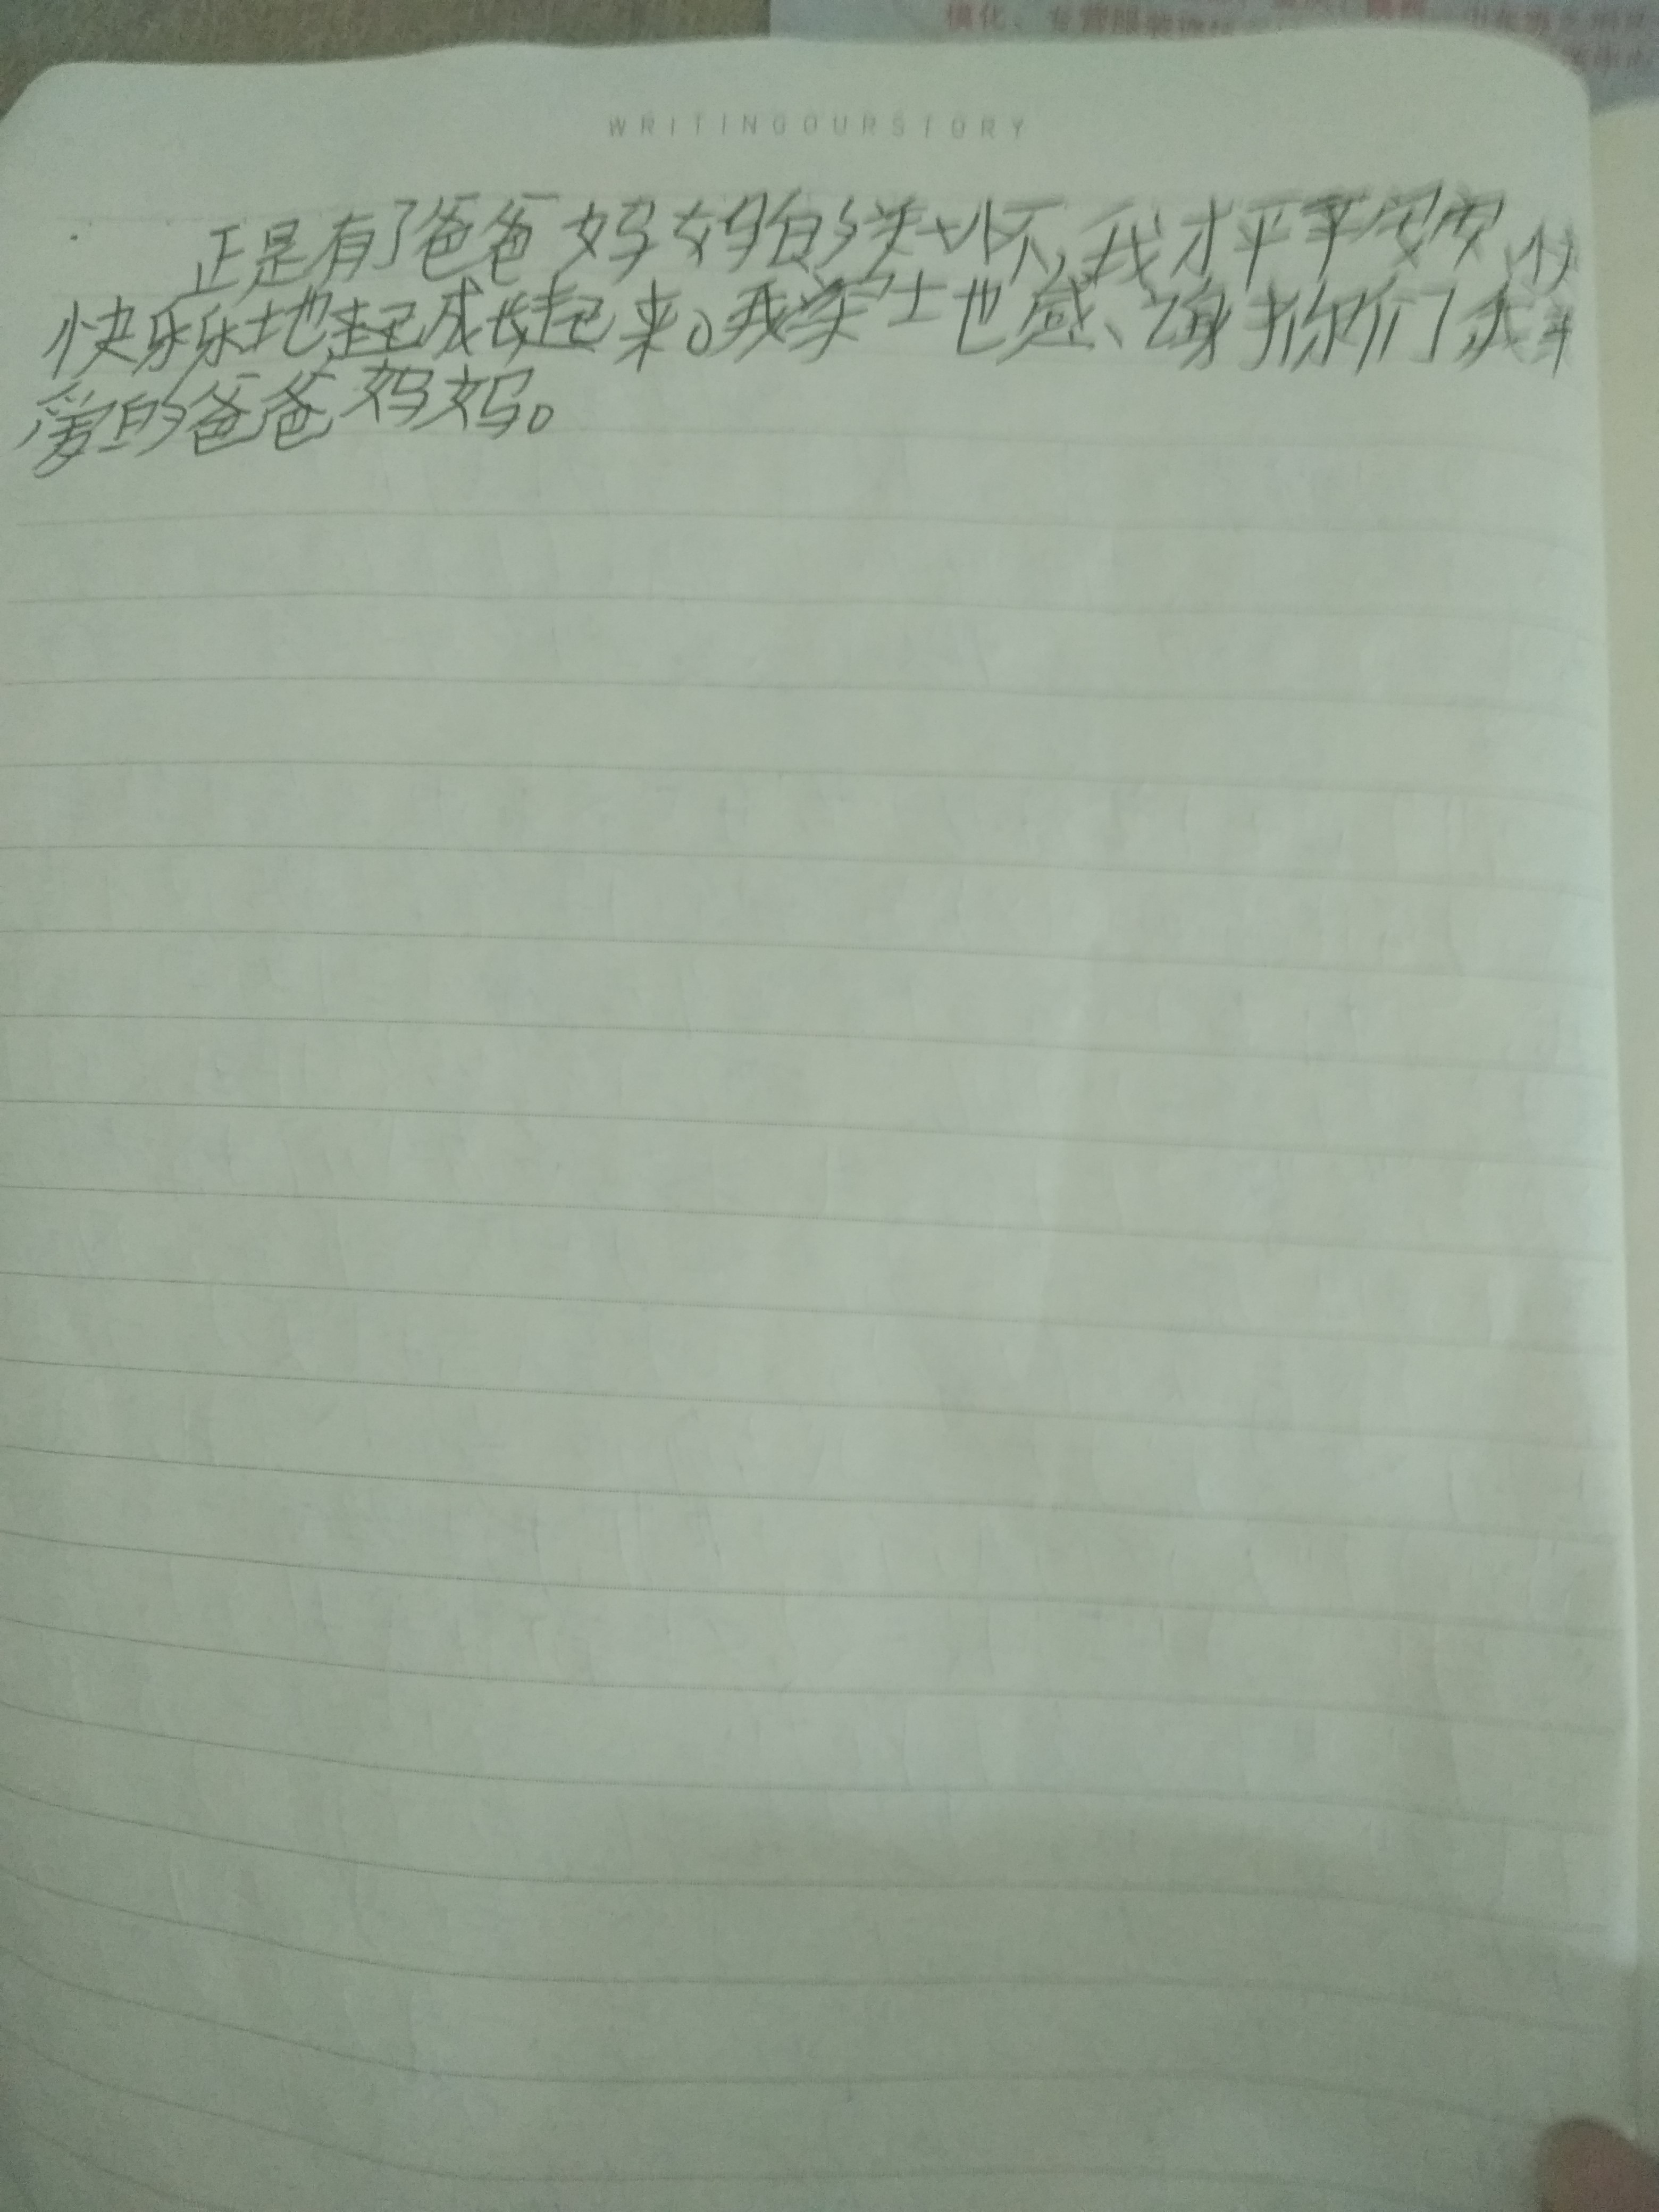 WRITINGOURSTORY
正是有了爸爸妈妈的关怀,我才平平安安,快
快乐乐地起成长起来。我实也感谢你们我
爱的爸爸妈妈。